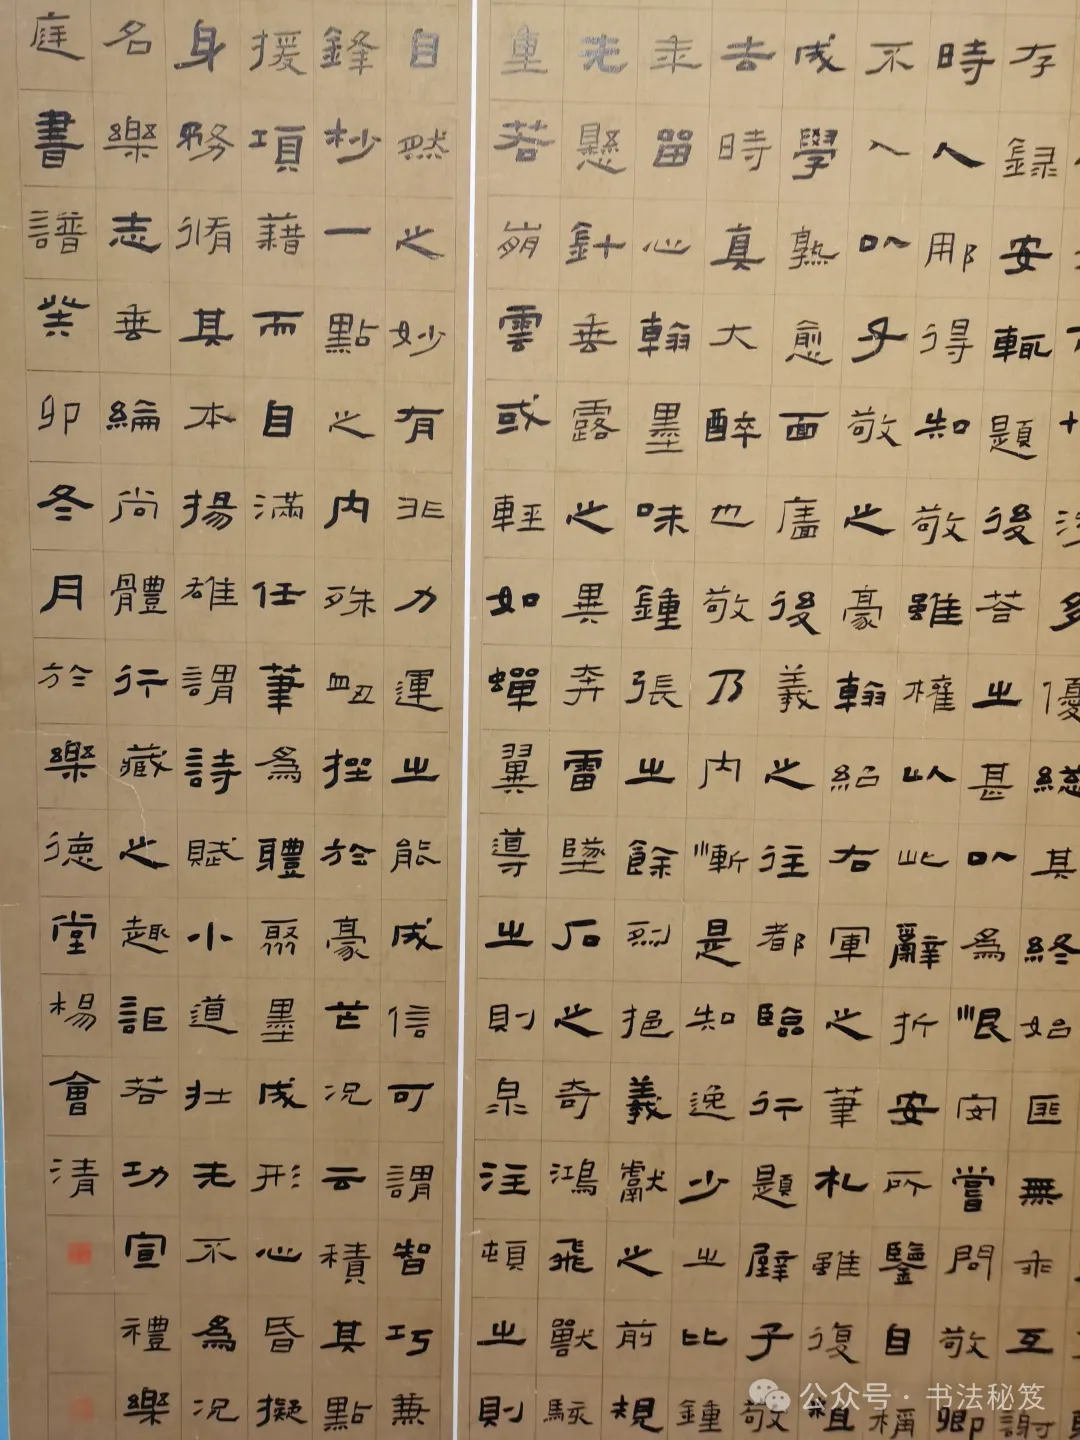 多優總其終始匪無乖互謝
存録安輒題後荅之甚以為恨安嘗問敬卿
時人那得知敬雖權以此辭折安所鑒自稱
不入以子敬之豪翰紹右軍之筆札雖復粗
成學熟愈面廧後羲之往都臨行題壁子敬
去時真大醉也敬乃内慚是知逸少之比鍾
年留心翰墨味鍾張之餘烈挹羲獻之前規
先懸針垂露之異奔雷墜石之奇鴻飛獸駭
重若崩雲或輕如蟬翼導之則泉注頓之則
自然之妙有非力運之能成信可謂智巧兼
鋒杪一點之内殊衄挫於豪芒况云積其點
援項藉而自滿任筆為體聚墨成形心昏擬
身務脩其本揚雄謂詩賦小道壯夫不為况
名樂志垂綸尚體行藏之趣詎若功宣禮樂
庭書譜癸卯冬月於樂德堂楊會清
公众号·书法秘笈